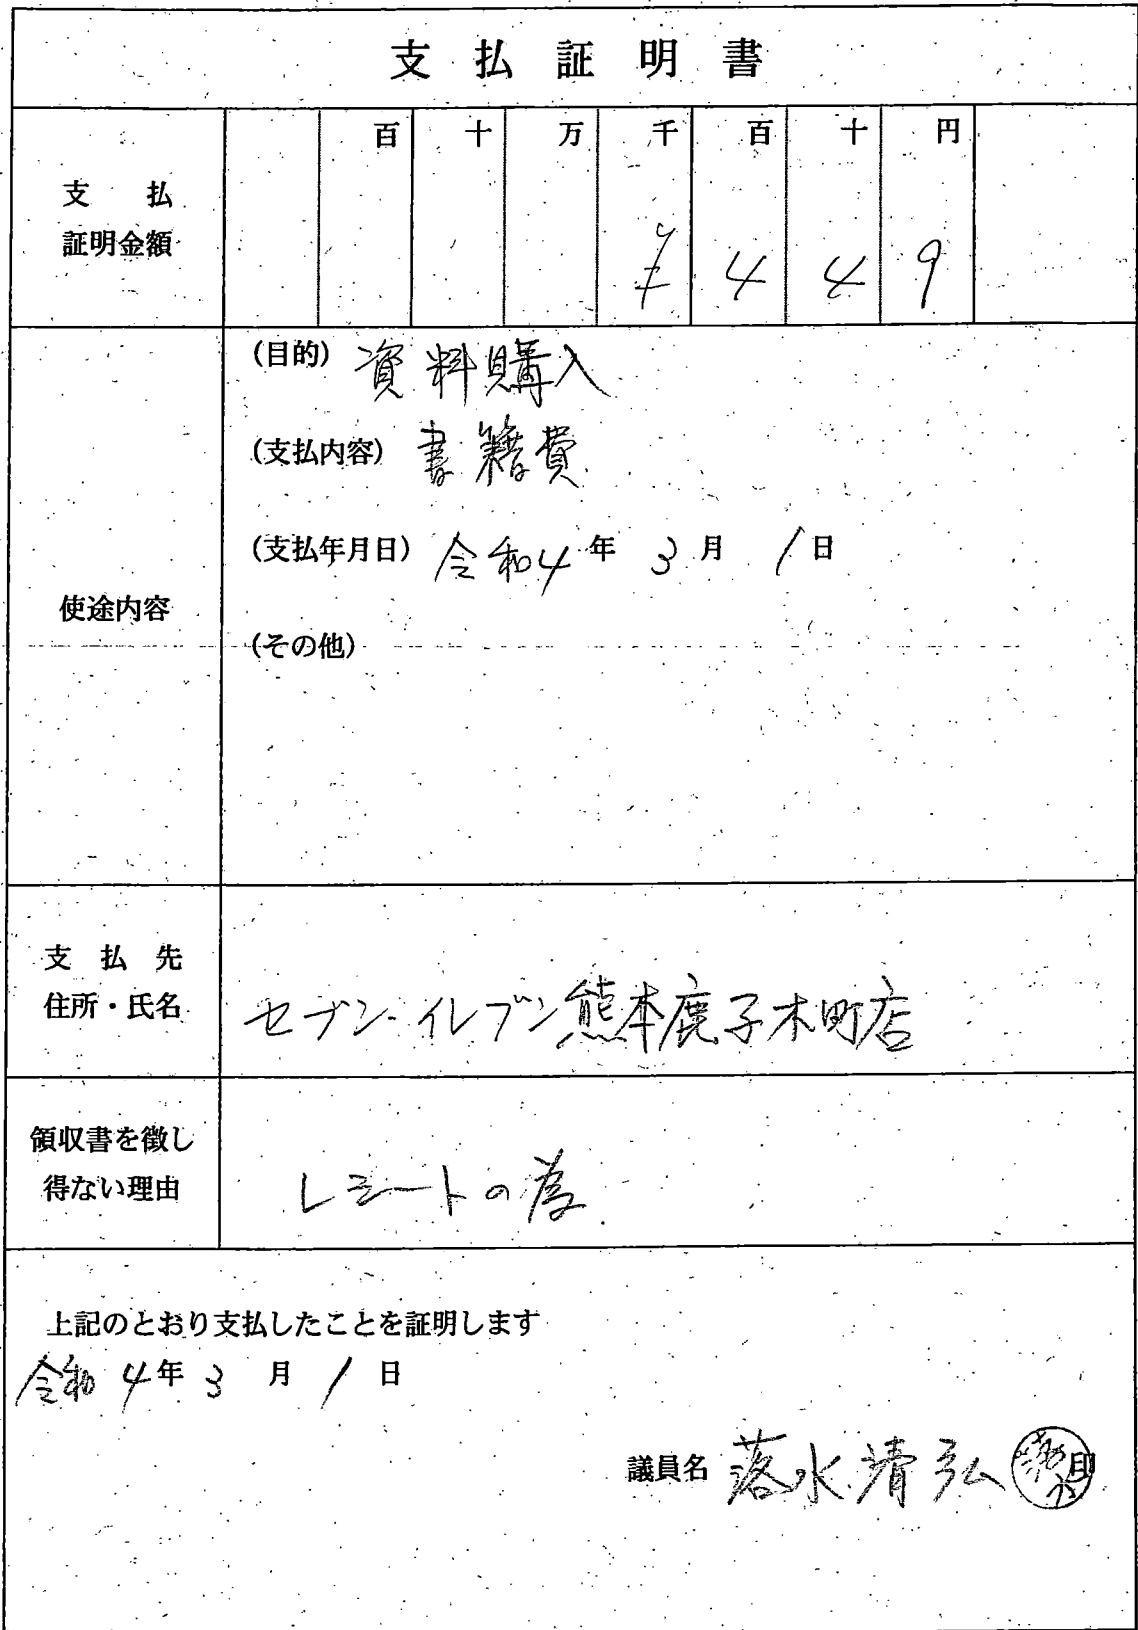 支払証明書
百 十 万 千 百 十 円
支払
証明金額
¥ 4 4 9
(目的) 資料購入
(支払内容) 書籍費
(支払年月日) 令和4年 3月 1日
使途内容
(その他)
支払先
住所・氏名
セブン-イレブン熊本鹿子木町店
領収書を徴し
得ない理由
レシートの為
上記のとおり支払したことを証明します
令和4年3月1日
議員名 落水清弘 印